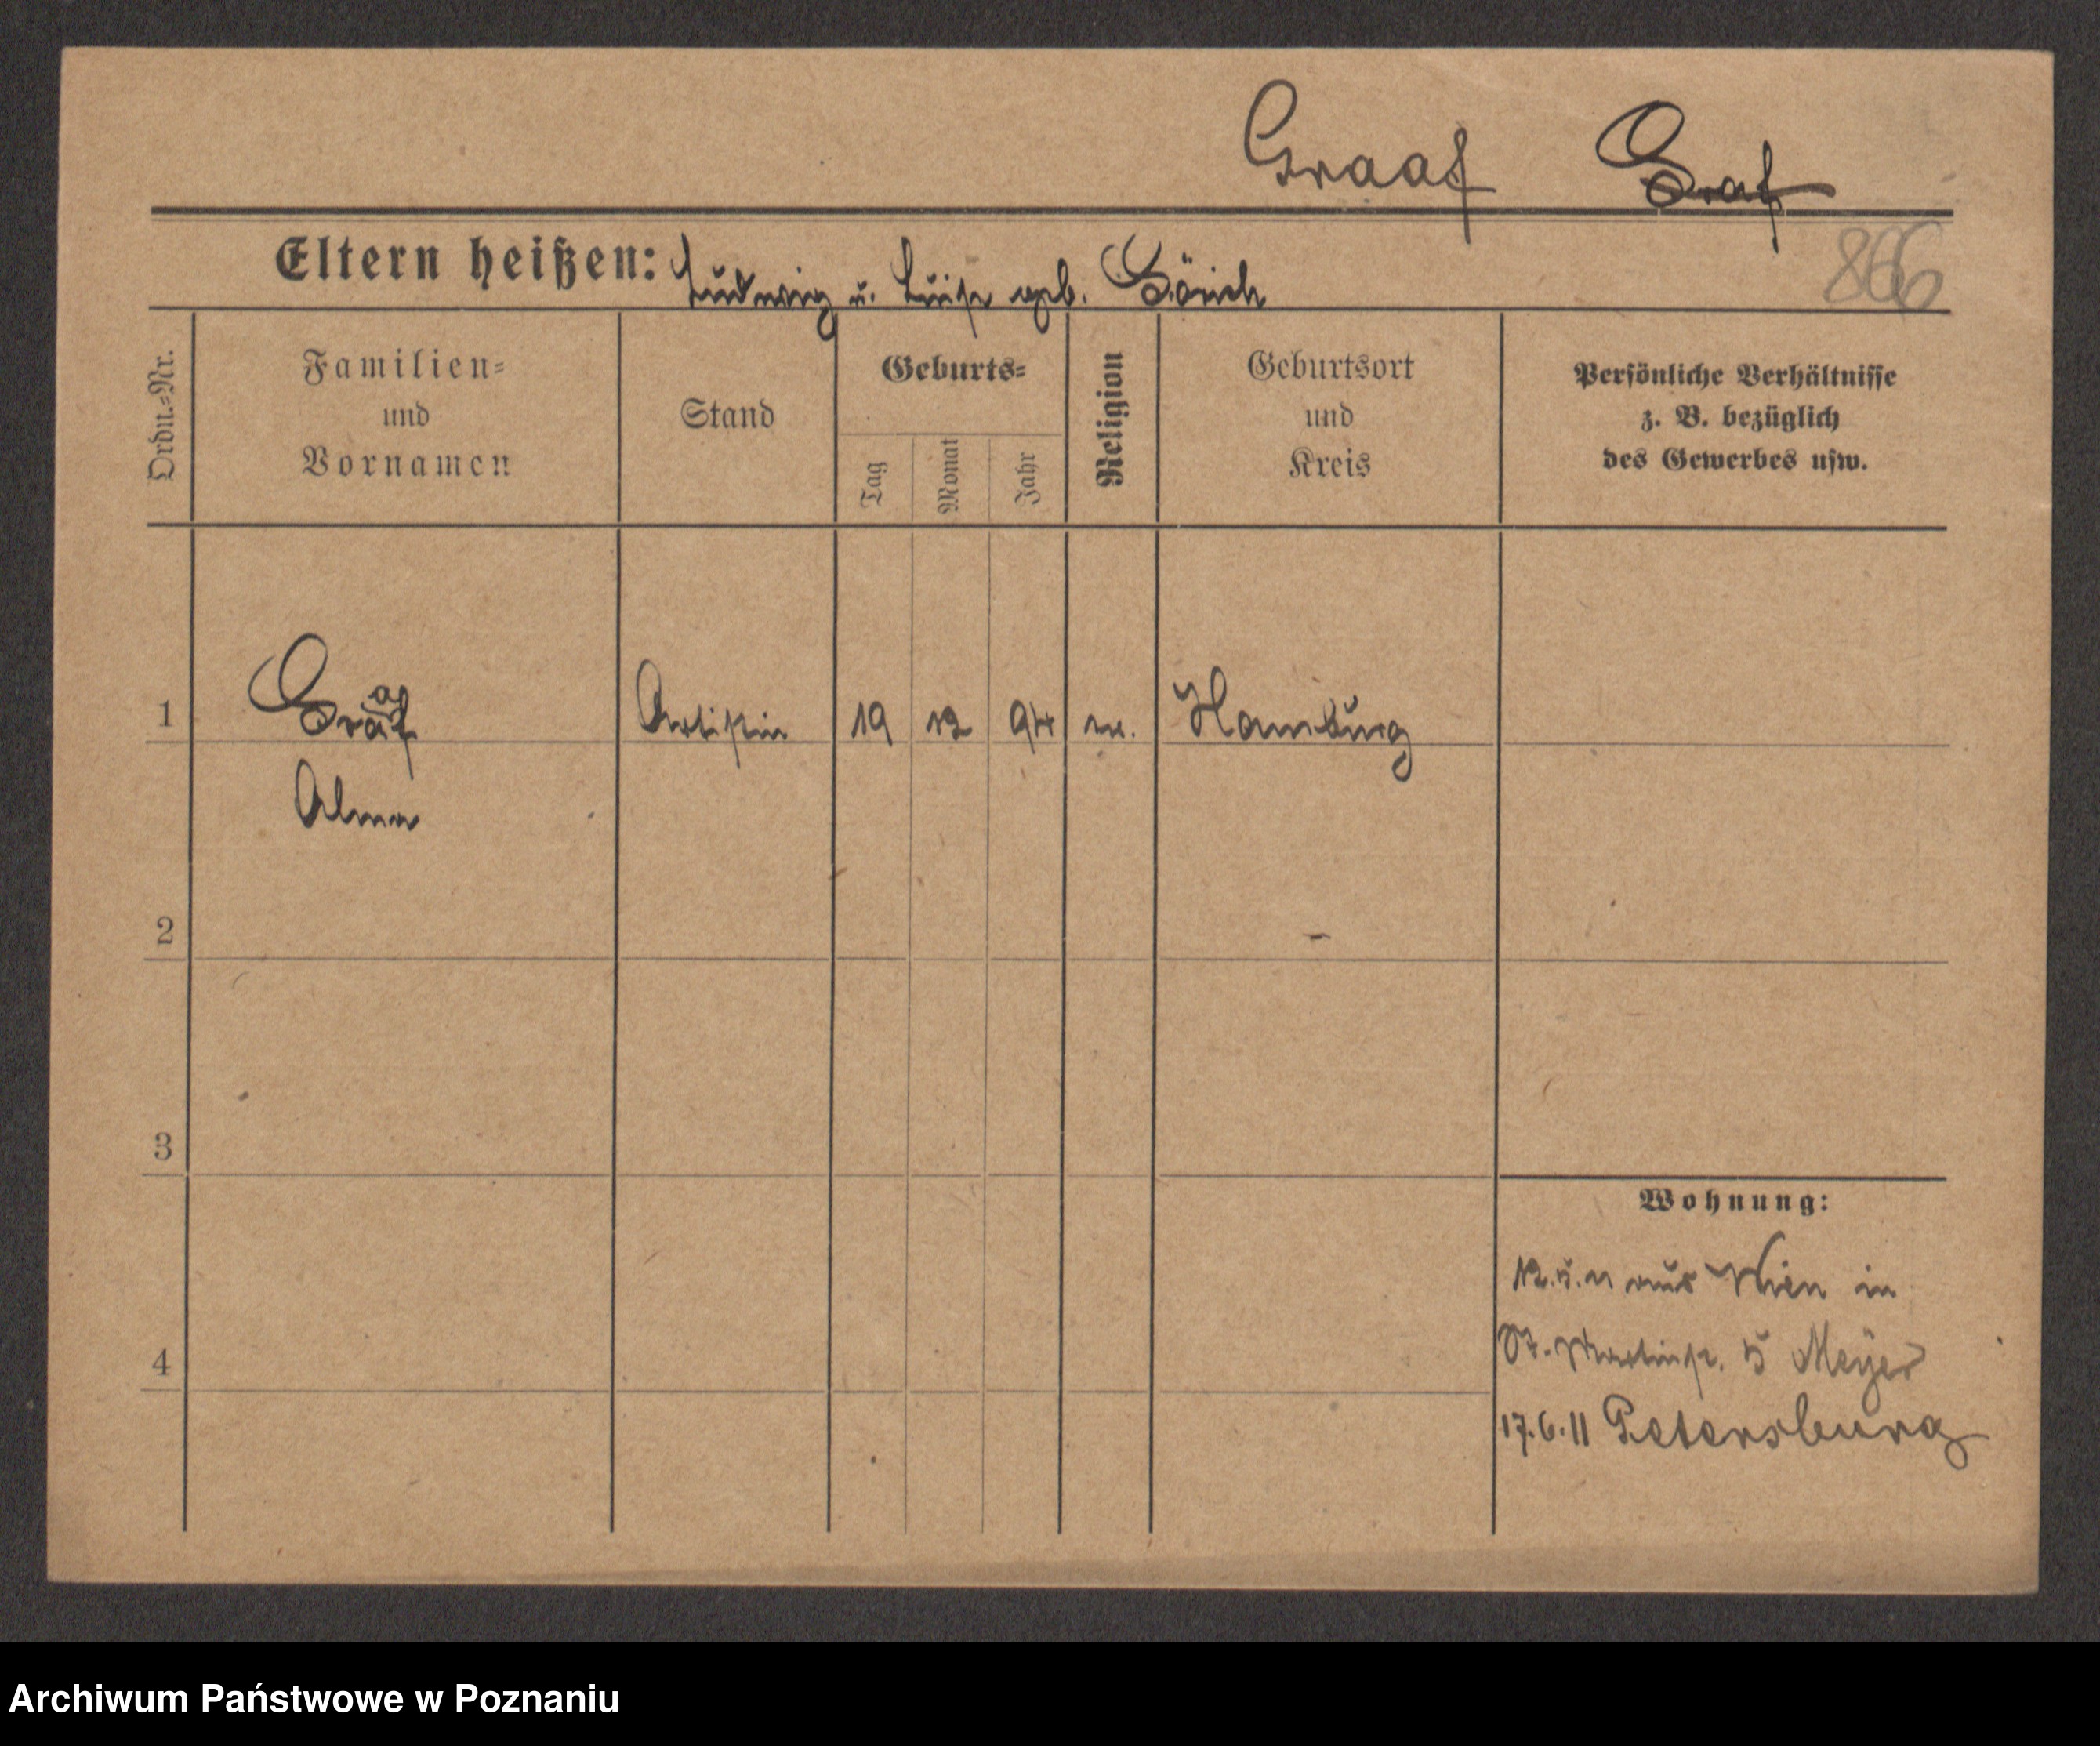 Graaf Graf
866
Eltern heißen: Ludwig u. Luise geb. Görich
Ordn.-Nr.
Familien-
und
Vornamen
Stand
Geburts-
Tag
Monat
Jahr
Religion
Geburtsort
und
Kreis
Persönliche Verhältnisse
z. B. bezüglich
des Gewerbes usw.
a
1 Graf Artistin 19 12 94 ev. Hamburg
Alma
2
3
Wohnung:
12.5.11 aus Wien in
St. Martinstr. 5 Meyer
4
17.6.11 Petersburg
Archiwum Państwowe w Poznaniu